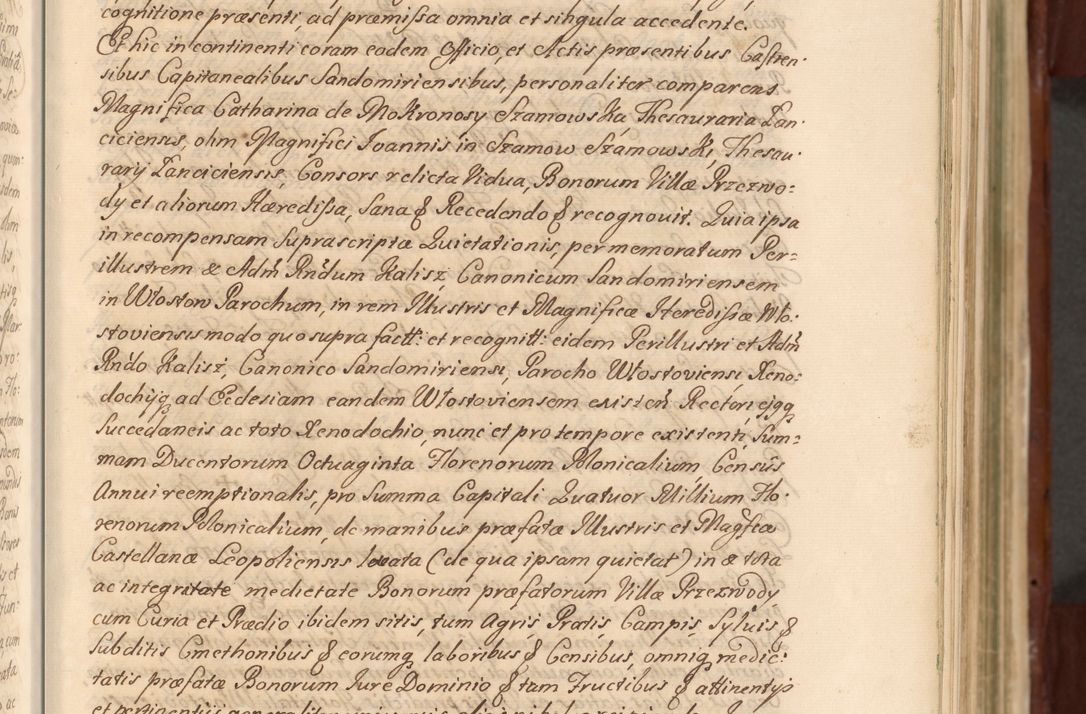 cognitione præsenti, ad præmissa omnia et singula accedente.
Et hic in continenti coram eodem Officio, et Actis præsentibus Castren-
sibus Capitanealibus Sandomiriensibus, personaliter comparens
Magnifica Catharina de Mokronosy Szamowska Thesauraria Lan-
ciciensis, olim Magnifici Joannis in Szamow Szamowski, Thesau-
rarij Lanciciensis, Consors relicta Vidua, Bonorum Villæ Przezwo-
dy et aliorum Hæredissa, Sana & Recedendo & recognovit. Quia ipsa
in recompensam Suprascriptæ Quietationis, per memoratum Per-
illustrem & Adm̃ Rñdum Kalisz Canonicum Sandomiriensem
in Włostow Parochum, in rem Illustris et Magnificæ Heredissæ Wło-
stoviensis modo quo supra factt: et recognitt: eidem Perillustri et Adm̃
Rñdo Kalisz, Canonico Sandomiriensi, Parocho Włostoviensi, Xeno-
dochijq ad Ecclesiam eandem Włostoviensem existeñ Rectori ejqq
Succedaneis ac toto Xenodochio, nunc et pro tempore existenti, Sum-
mam Ducentorum Octuaginta Florenorum Polonicalium Censûs
Annui reemptionalis, pro Summa Capitali Quatuor Millium Flo-
renorum Polonicalium, de manibus præfatæ Illustris et Magfcæ
Castellanæ Leopoliensis levata (de qua ipsam quietat) in & tota
ac integritate medietate Bonorum præfatorum Villæ Przezwody
cum Curia et Prædio ibidem sitis, tum Agris, Pratis, Campis, Sylvis &
Subditis Cmethonibus & eorumq laboribus & Censibus, omniq medie-
tatis præfatæ Bonorum Jure Dominio & tam Fructibus & attinentijs
et pertinentijs generaliter